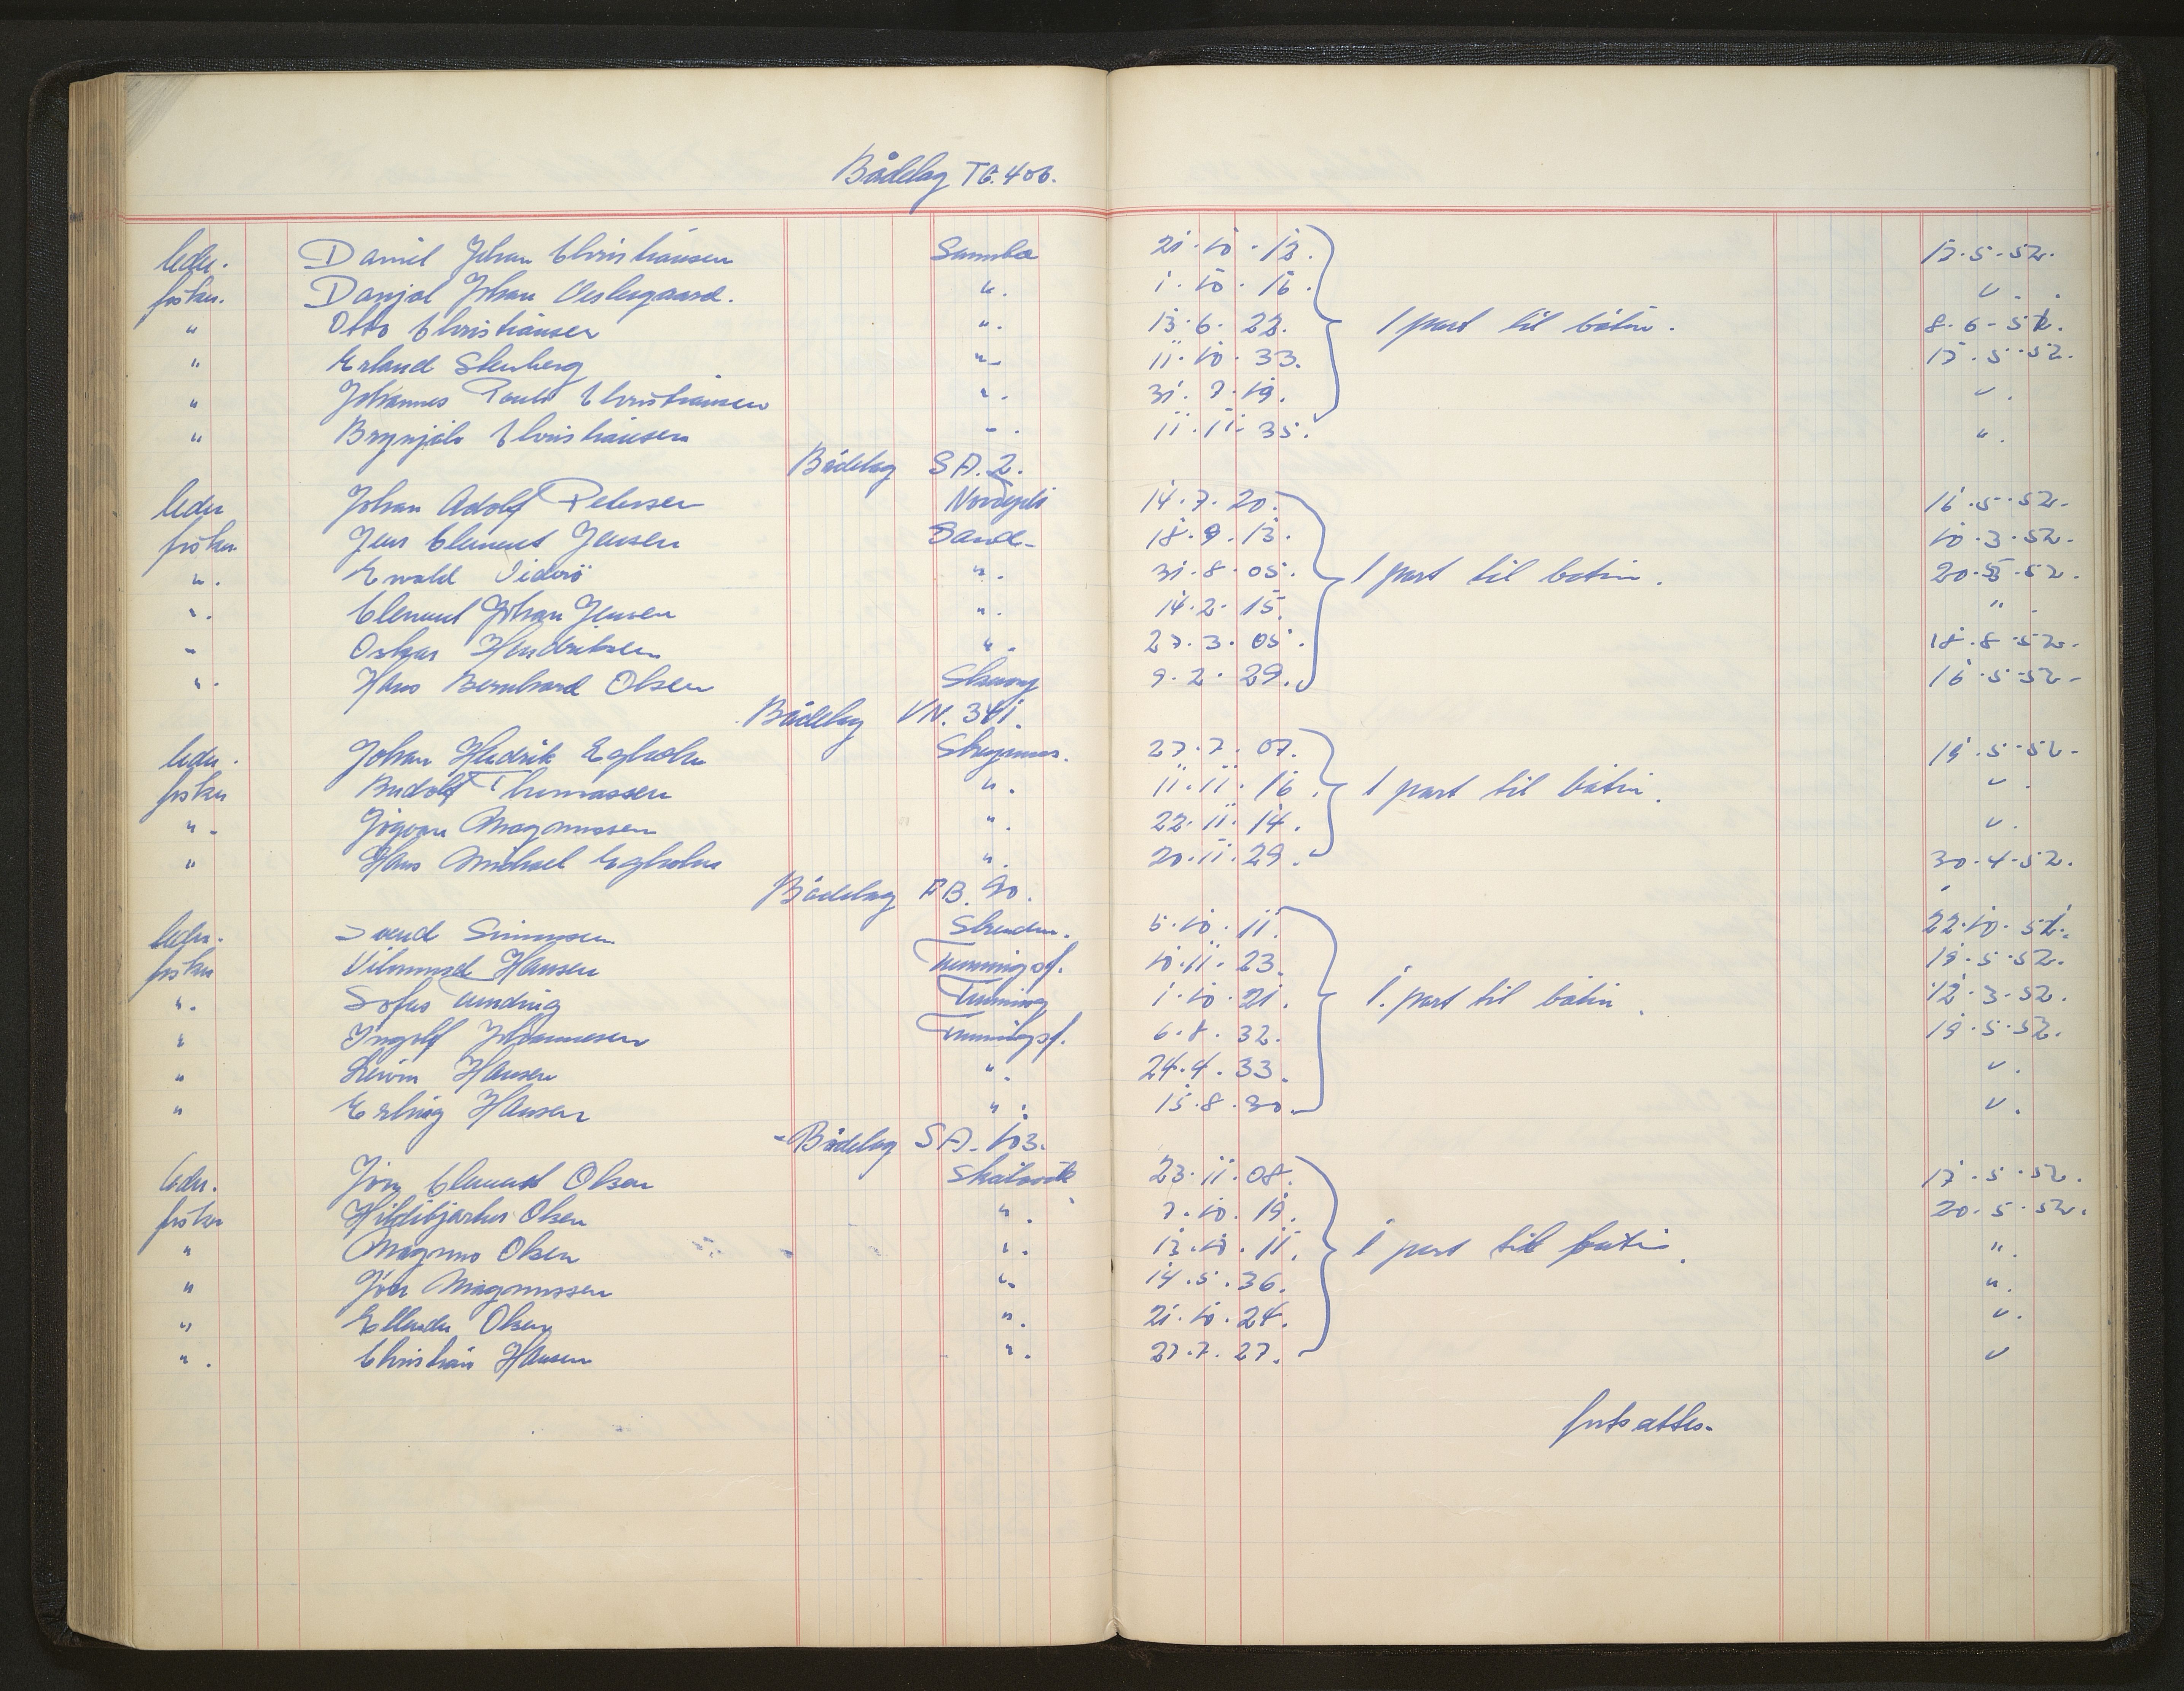 Bådelag TG. 406.
leder. Daniel Johan Christiansen Sumba 21.10.12. 17.5.52.
fisker. Danjal Johan Vestergaard. ". 1.10.16. ".
" Otto Christiansen ". 13.6.22. 1 part til bátin. 8.6.52.
" Erland Stenberg " 11.10.33. 17.5.52.
" Johannes Pauli Christiansen ". 31.7.19. ".
" Brynjolv Christiansen ". 11.11.35. ".
Bådelag SA. 2.
leder Johan Adolf Petersen 14.7.20. 16.5.52.
fisker Jens Clement Jensen Sand 18.9.13. 10.3.52.
". Ewald Viderø ". 31.8.05. 1 part til bátin. 20.5.52.
". Clement Johan Jensen ". 14.2.15. ".
" Oskar Hendriksen ". 27.3.05. 18.8.52.
". Hans Bernhard Olsen Skuvoy 9.2.29. 16.5.52.
Bådelag VN. 341.
leder. Johan Hendrik Egholm 27.7.07. 19.5.52.
fisker Rudolf Thomassen ". 11.11.16. 1 part til bátin. ".
". Jógvan Magnussen ". 22.11.14. ".
" Hans Michael Egholm ". 20.11.29. 30.4.52.
Bådelag FB. 90.
leder. Svend Simonsen Strender. 5.10.11. 22.10.52.
fisker Vilmund Hansen 10.11.23. 19.5.52.
". Sofus 1.10.21. 1. part til bátin. 12.3.52.
" Ingolf Johannesen 6.8.32. 19.5.52.
" Hansen ". 24.4.33. ".
" Erling Hansen ". 15.8.30. ".
Bådelag SA. 103.
leder. Jóng Clement Olsen Skálavík 23.11.08. 17.5.52.
fisker Hildibjartur Olsen ". 7.10.19. 20.5.52.
" Magnus Olsen ". 13.10.11. 1 part til bátin. ".
" Jóan Magnussen " 14.5.36. ".
" Ellendur Olsen ". 21.10.24. ".
". Christian Hansen ". 27.7.27. "
fortsættes.